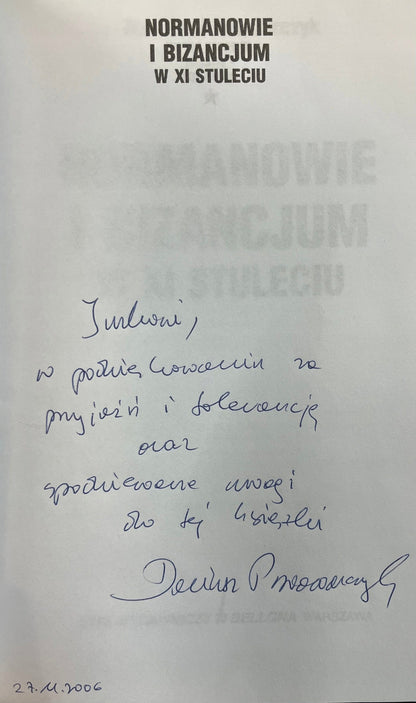 NORMANOWIE
I BIZANCJUM
W XI STULECIU
NORMANOWIE
I BIZANCJUM
W XI STULECIU
Jurkowi,
w podziękowaniu za
przyjaźń i tolerancję
oraz
spodziewane uwagi
do tej książki
Dariusz
BELLONA WARSZAWA
27.11.2006